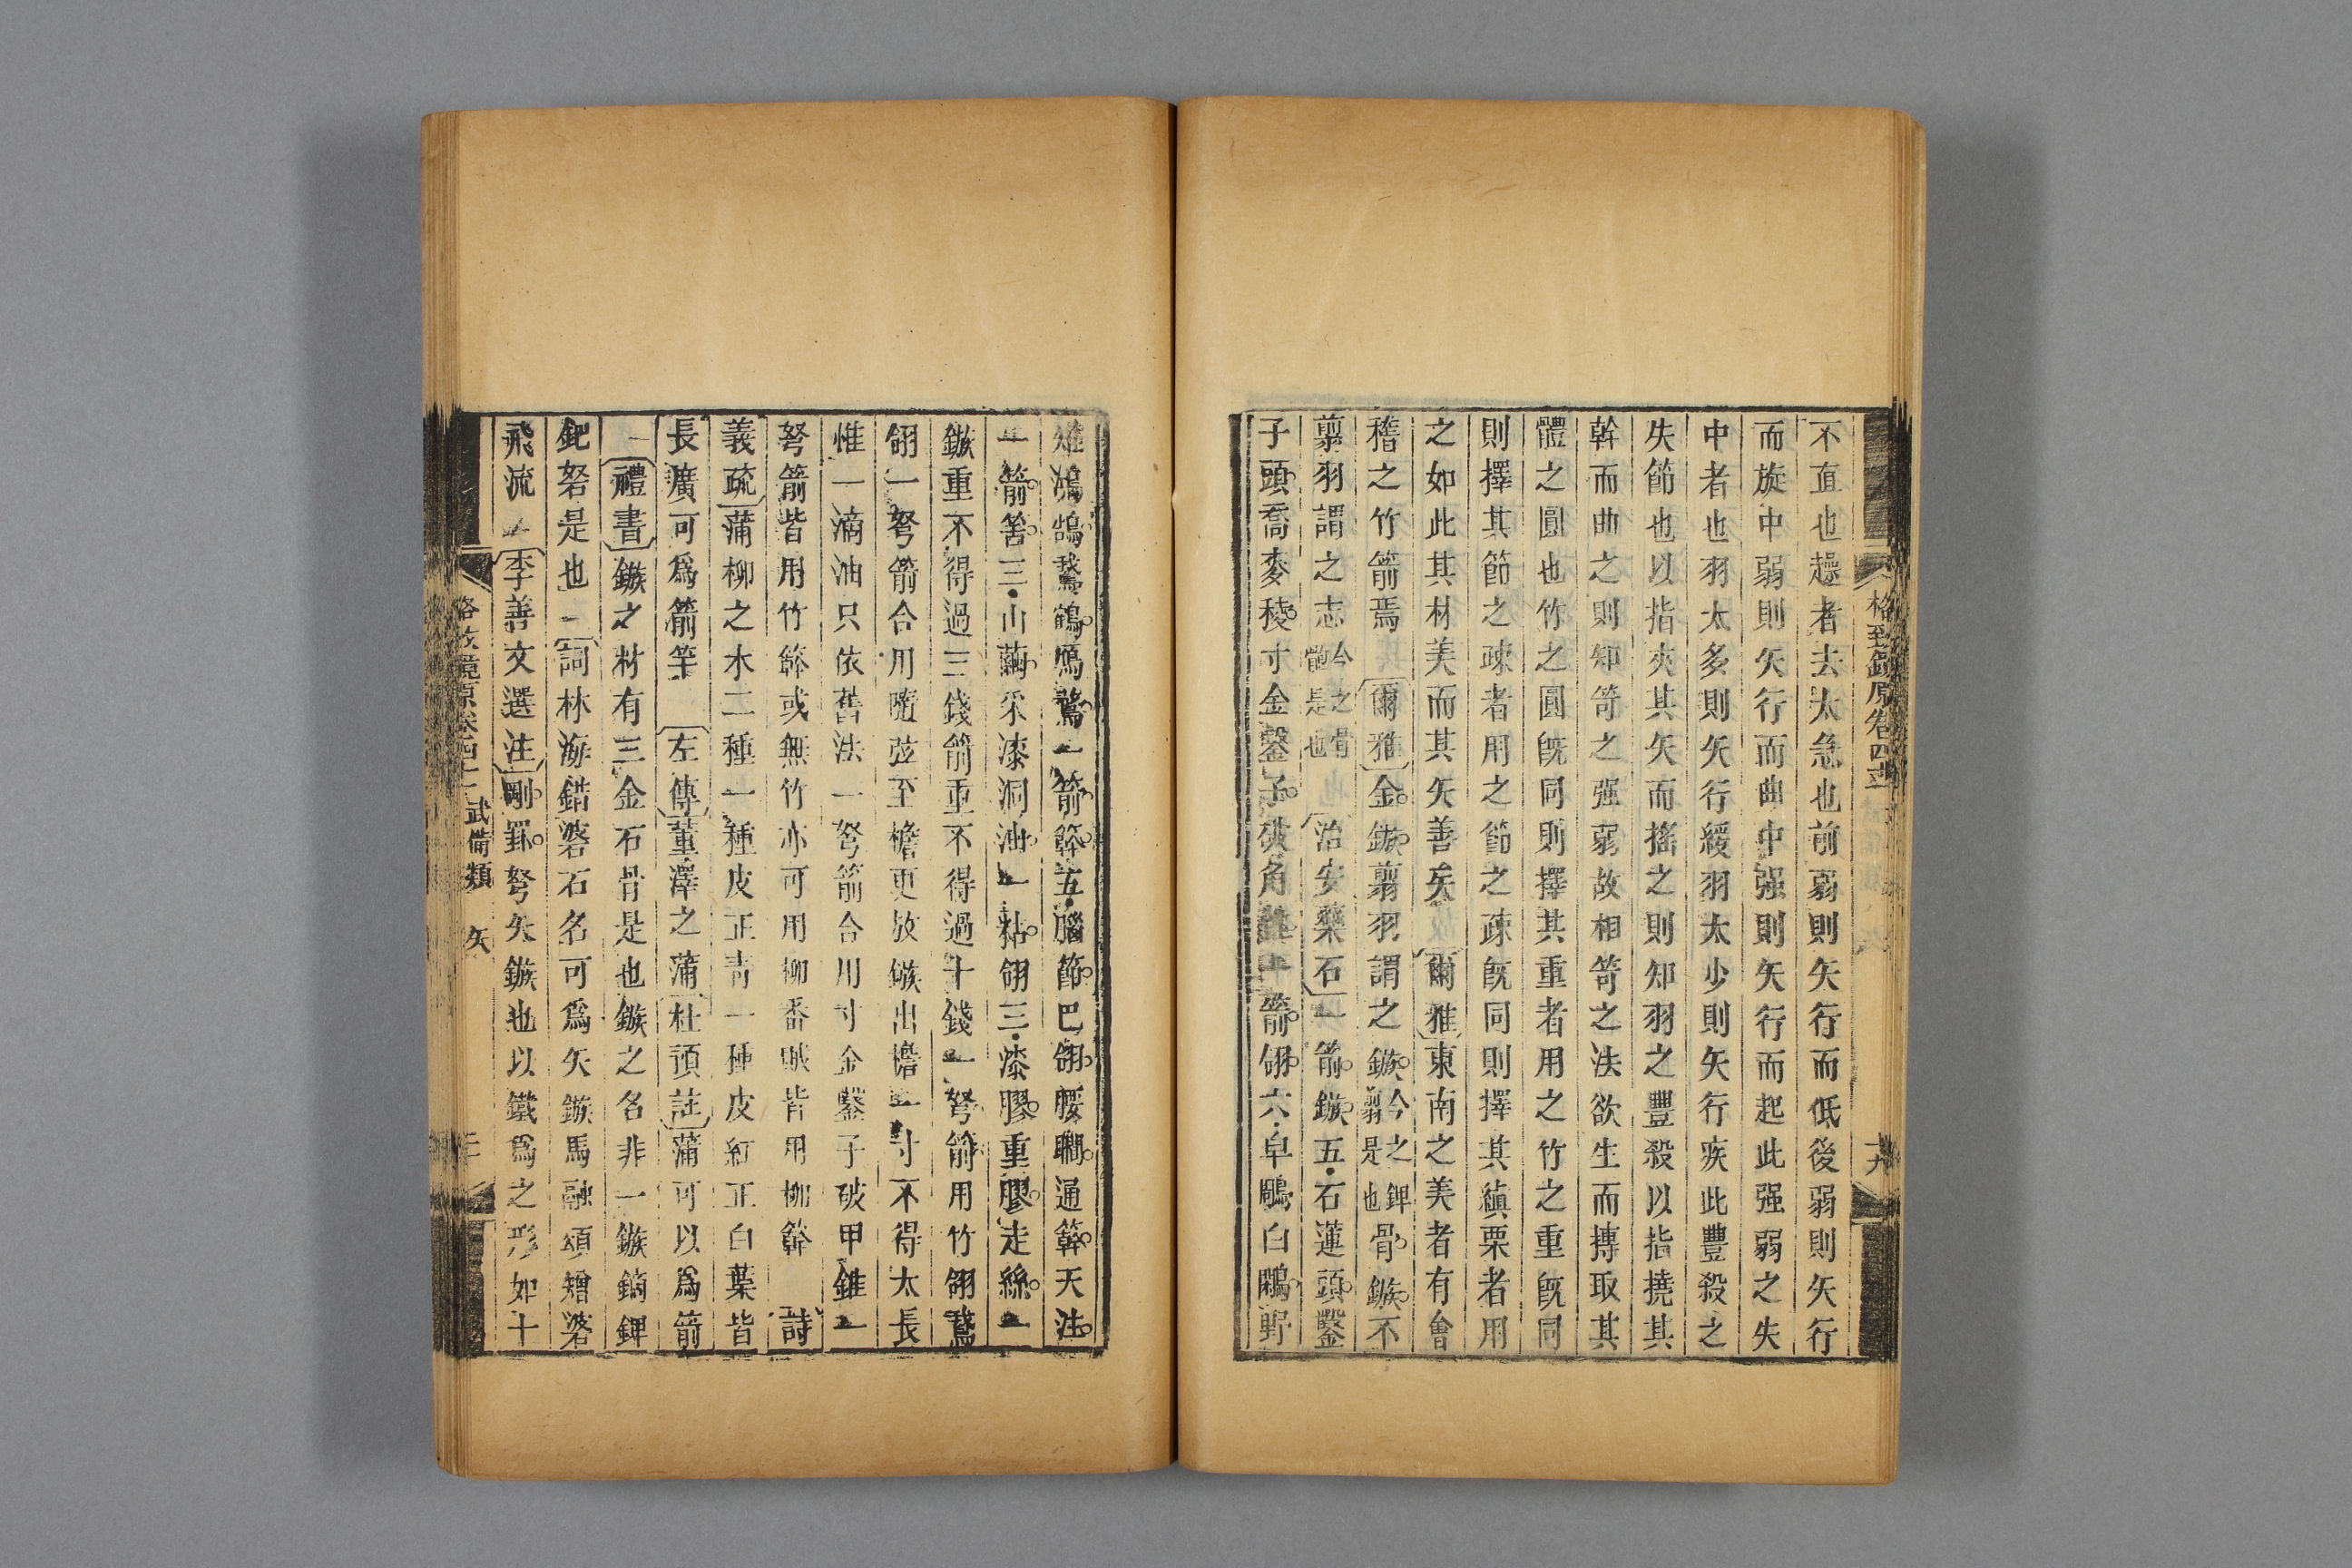 格致鏡原卷四十
不直也趮者去太急也前弱則矢行而低後弱則矢行
而旋中弱則矢行而曲中强則矢行而起此强弱之失
中者也羽太多則矢行緩羽太少則矢行疾此豐殺之
失節也以指夾其矢而搖之則知羽之豐殺以指撓其
幹而曲之則知笴之强弱故相笴之法欲生而摶取其
體之圓也竹之圓旣同則擇其重者用之竹之重旣同
則擇其節之疎者用之節之疎旣同則擇其縝栗者用
之如此其材美而其矢善矣 爾雅東南之美者有會
稽之竹箭焉 爾雅金鏃翦羽謂之鏃今之錍翦是也骨鏃不
翦羽謂之志今之骨骲是也 治安藥石一箭鏃五石蓮頭鑿
子頭喬麥稜寸金鑿子破角 箭翎六皁鵰白鵰野
雉鴻鵠鵞鶴鴈鶩一箭簳五腦節巴翎腰 通簳天注
一箭筈三山繭采漆洞油一粘翎三漆膠重膠走絲一
鏃重不得過三錢箭重不得過十錢一弩箭用竹翎鵞
翎一弩箭合用隨弦至檐更放鏃出檐一寸不得太長
惟一滴油只依舊法一弩箭合用寸金鑿子破甲錐一
弩箭皆用竹簳或無竹亦可用柳番賊皆用柳簳 詩
義疏蒲柳之木二種一種皮正靑一種皮紅正白葉皆
長廣可爲箭竿 左傳董澤之蒲杜預註蒲可以爲箭
禮書鏃之材有三金石骨是也鏃之名非一鏃鏑錍
鈀砮是也 詞林海錯磐石名可爲矢鏃馬融頌矰磐
飛流 李善文選注剛罫弩矢鏃也以鐵爲之形如十
格致鏡原卷四十 武備類 矢